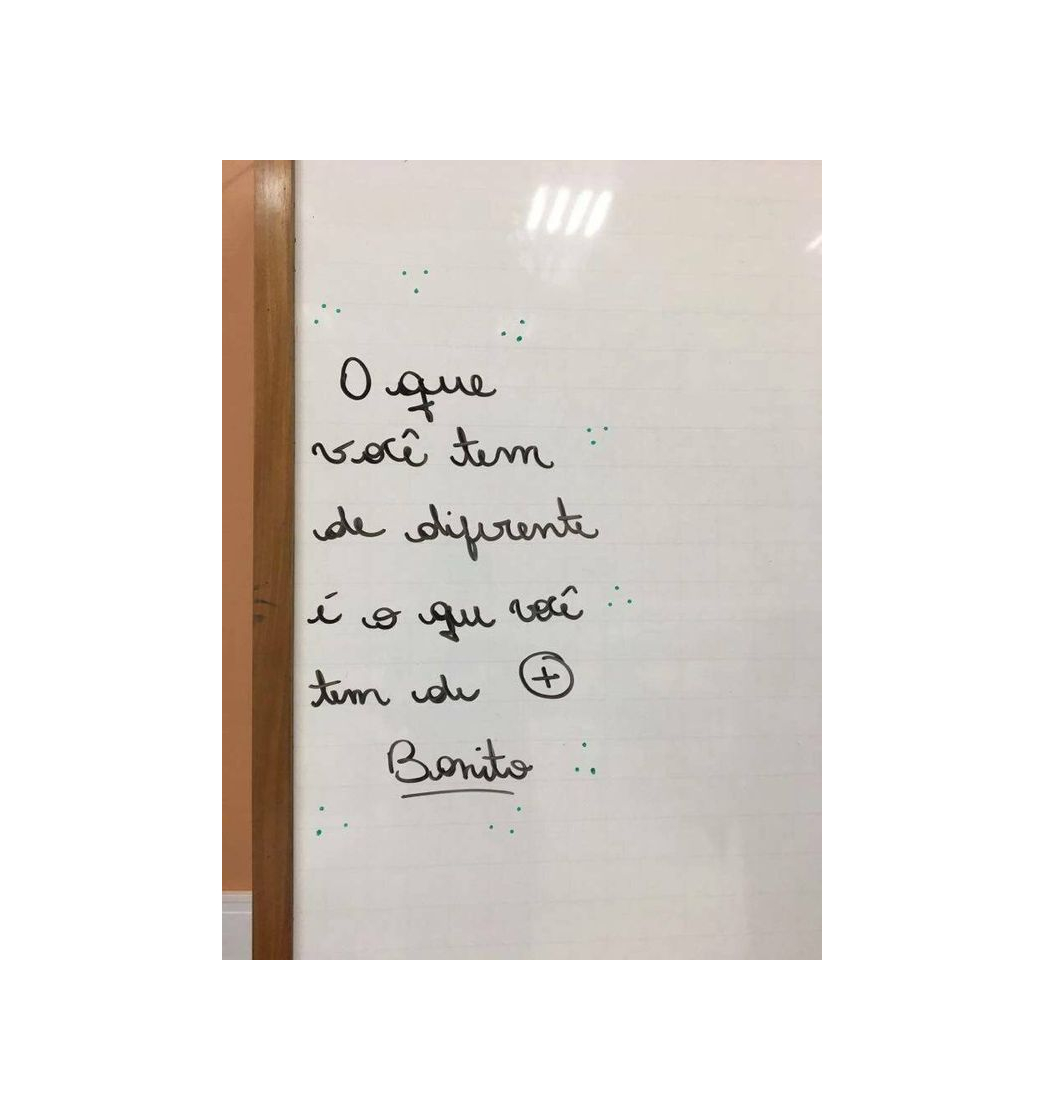 O que
você tem
de diferente
é o que você
tem de +
Bonito